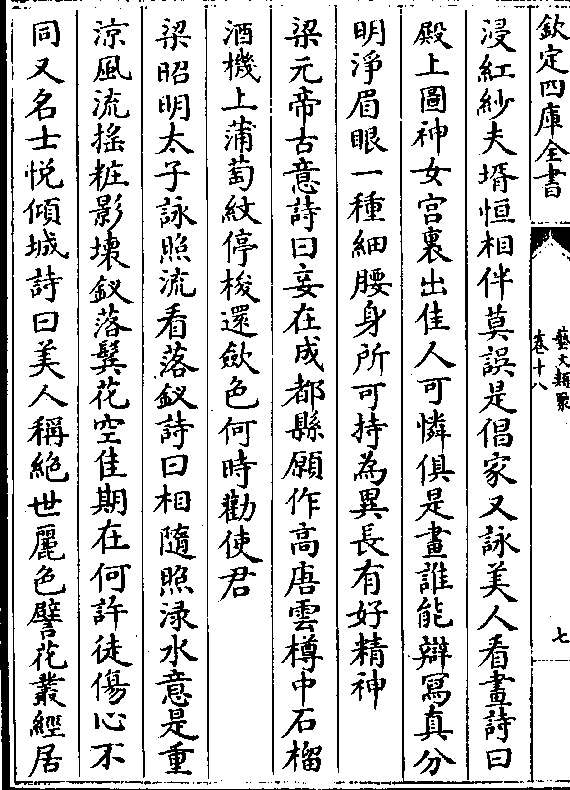 欽定四庫全書
藝文類聚
卷十八
七
浸紅紗夫壻恒相伴莫誤是倡家又詠美人看畫詩曰
殿上圖神女宮裏出佳人可憐俱是畫誰能辯寫真分
明淨眉眼一種細腰身所可持為異長有好精神
梁元帝古意詩曰妾在成都縣願作高唐雲樽中石榴
酒機上蒲萄紋停梭還斂色何時勸使君
梁昭明太子詠照流看落釵詩曰相隨照渌水意是重
涼風流搖粧影壞釵落鬂花空佳期在何許徒傷心不
同又名士悅傾城詩曰美人稱絕世麗色譬花叢經居